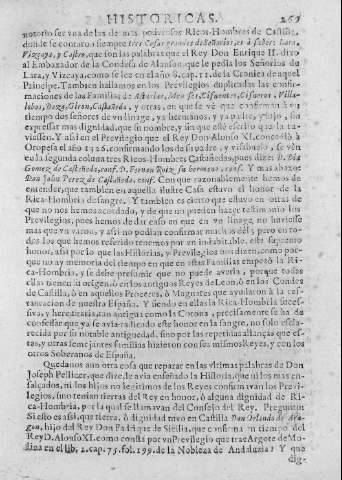 HISTORICAS. 269
notorio ser vna de las mas poderosas Ricos-Hombres de Castilla,
donde se contaron siempre tres Casas grandes de Señorios, es à saber: Lara,
Vizcaya, y Castro, que son las palabras que el Rey Don Enrique II. dixo
al Embaxador de la Condesa de Alanson, que le pedia los Señorios de
Lara, y Vizcaya, como se lee en el año 8. cap. 11. de la Cronica de aquel
Principe. Tambien hallamos en los Previlegios duplicadas las confir-
maciones de las Familias de Asturias, Meneses, Cifuentes, Cisneros, Villa-
lobos, Daza, Giron, Castañeda, y otras, en que se vè que confirman à vn
tiempo dos señores de vn linage, yà hermanos, y yà padre, y hijo, sin
expressar mas dignidad, que su nombre, y sin que estè escrito que la tu-
viessen. Y assi en el Previlegio que el Rey Don Alonso XI. concediò à
Oropesa el año 1326. confirmandolos de su padre, y visabuelo, se vèn
en la segunda coluna tres Ricos-Hombres Castañedas, pues dize: D. Dia
Gomez de Castañeda, conf. D. Fernan Ruiz su hermano conf. Y mas abaxo:
Don Juan Perez de Castañeda, conf. Con que razonablemente hemos de
entender, que tambien en aquella ilustre Casa estuvo el honor de la
Rica-Hombria de sangre. Y tambien es cierto que estuvo en otras de
que no nos hemos acordado, y de que no pueden hazer testimonio los
Previlegios, pues hemos de dar caso en que en vn linage no huviesse
mas que vn varon, y assi no podian confirmar muchos dèl; pero en to-
dos los que hemos referido tenemos por indubitable, este supremo
honor, assi por lo que las Historias, y Previlegios nos dizen, como por-
que no ay memoria del tiempo en que en estas Familias empezò la Ri-
ca-Hombria, y se debe presumir que no puede averla, porque todos
ellas tienen su origen, ò en los antiguos Reyes de Leon, ò en los Condes
de Castilla, ò en aquellos Proceres, ò Magnates que ayudaron à la res-
tauracion de nuestra España. Y siendo en ellas la Rica-Hombria succes-
siva, y hereditaria, tan antigua como la Corona, precisamente se ha de
confessar que yà se avia radicado este honor en la sangre, no solo escla-
recida por su notable antiguedad, sino por las repetidas alianças que es-
tas, y otras semejantes familias hizieron con sus mismos Reyes, y con los
otros Soberanos de España.
Quedanos aun otra cosa que reparar en las vltimas palabras de Don
Joseph Pellicer, que dize, le avia enseñado la Historia, que ni los mas en-
salçados, ni los hijos no legitimos de los Reyes confirmavan los Previ-
legios, sino tenian tierras del Rey en honor, ò alguna dignidad de Ri-
ca-Hombria, por la qual se llamavan del Consejo del Rey. Pregunto:
Si esto es assi, que tierra, ò dignidad tuvo en Castilla Don Orlando de Ara-
gon, hijo del Rey Don Fadrique de Sicilia, que confirma en tiempo del
Rey D. Alonso XI. como consta por vn Previlegio que trae Argote de Mo-
lina en el lib. 2. cap. 75. fol. 199. de la Nobleza de Andaluzia? Y que
dig-